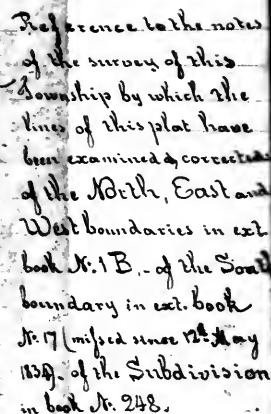 Reference to the notes
of the survey of this
Township by which the
lines of this plat have
been examined & corrected
of the North, East and
West boundaries in ext.
book Nr. 1 B. - of the South
boundary in ext. book
Nr. 17 (missed since 12th May
1834). of the Subdivision
in book Nr. 248.